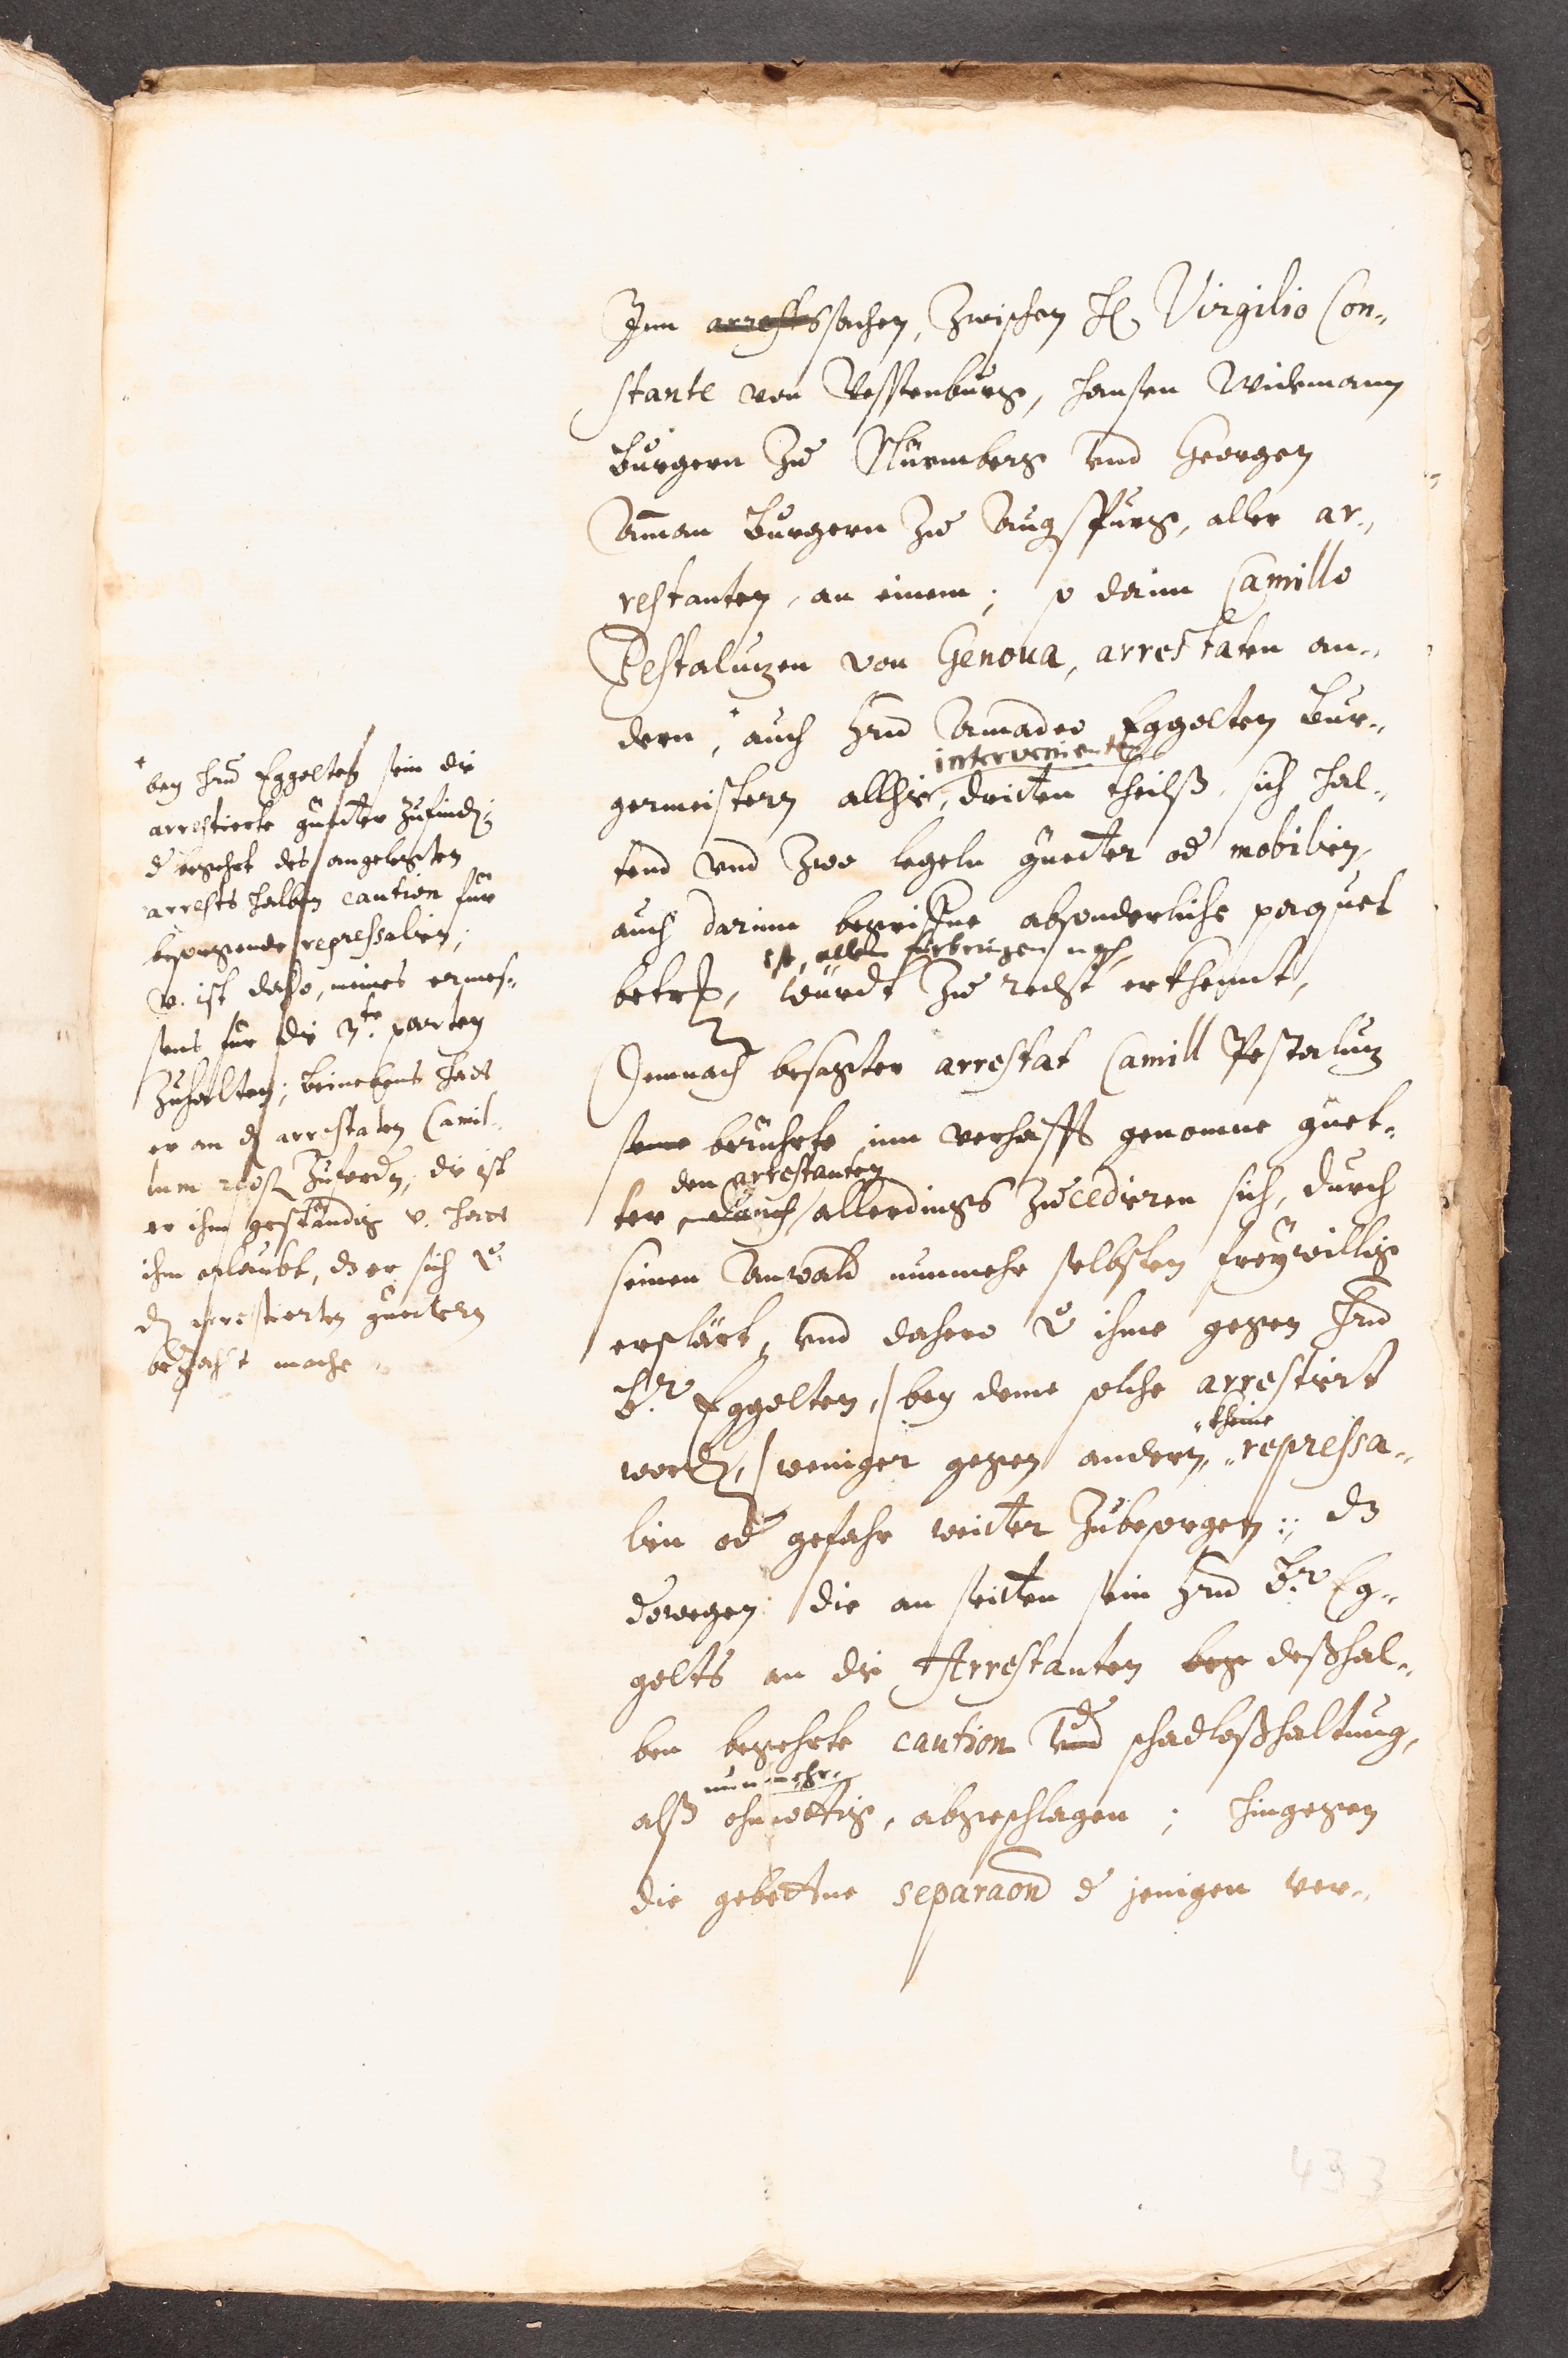 Inn arrestssachen, Zwischen H. Virgilio Con-
stante von Vesstenburg, Hansen Widemann
Burgern Zu Nürmberg vnd Georgen
Amman Burgern Zu Augspurg, aller ar-
restanten, an einem; so dann Camillo
Pestalutzen von Genoua, arrestaten an-
dern, * auch Hrn Amadeo Eggolten Bur-
intervenienten
germeistern allhie, dritten theilß, sich hal-
tend vnd Zwo legeln güetter od mobilien,
auch darinn begriffne absonderliche paquet
allem fürbringen nach,
betr, würdt Zu recht erkhennt,
Demnach besagter arrestat Camill Pestalutz
seine berührte inn verhafft genomne güet-
den arrestanten
ter auch allerdings Zu cedieren sich, durch
seinen Anwald nunmehr selbsten freywillig
erclärt, vnd dahero v ihme gegen Hrn
B.r Eggolten, / bey deme solche arrestiert
kheine
word, / weniger gegen andern, repressa-
lien od gefahr weitter Zubesorgen: dz
derowegen die an seitten sein Hrn B.r Eg-
golts an die Arrestanten beg deßhal-
ben begehrte caution vnd schadloßhaltung,
nunmehr
alß ohnnöttig, abgeschlagen; hingegen
die gebettne separaon d jenigen ver-
* bey Hrn Eggolten sein die
arrestierte güetter Zufind;
d begehrt des angelegten
arrests halben caution für
besorgende repressalien;
v. ist daho, meines ermes-
sens für die 3.te partey
Zuhalten; beinebens hats
er an d arrestaten Camil-
lum Zuford, die ist
er ihm geständig v. hats
ihm erlaubt, dz er sich v
d arrestierten güettern
bezahlt mache
433